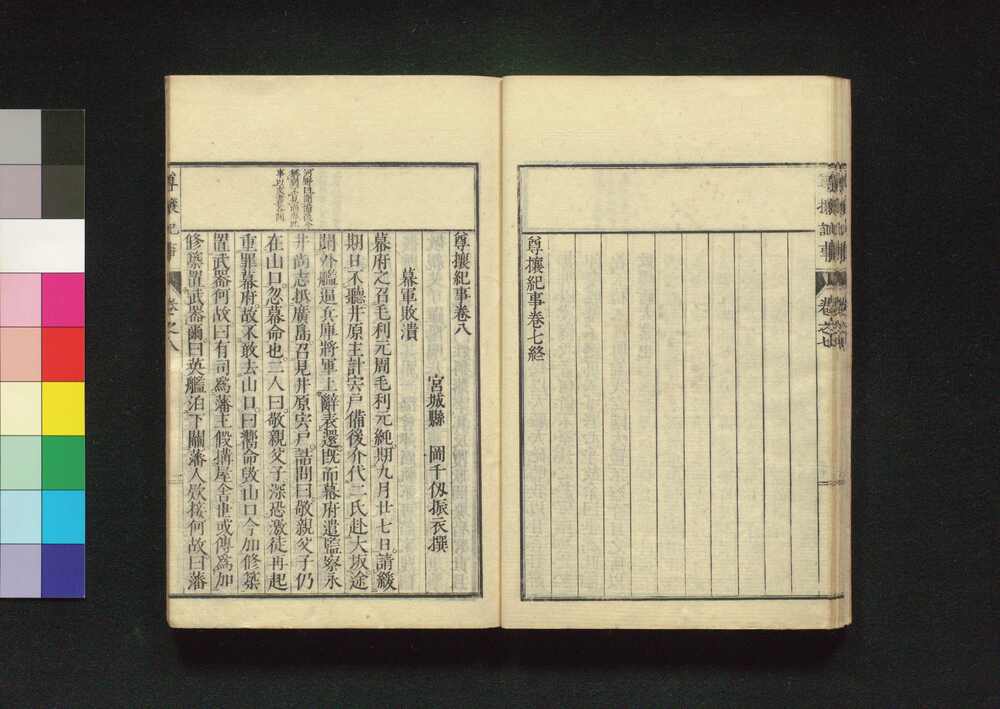 尊攘紀事卷七終
尊攘紀事
卷之七
尊攘紀事卷八
宮城縣 岡千仭振衣撰
幕軍敗潰
幕府之召毛利元周毛利元純。期九月廿七日。請緩
期。且不聽。井原主計宍戶備後介代二氏赴大坂。途
聞外艦逼兵庫。將軍上辭表還。既而幕府遣監察永
井尚志抵廣島。召見井原宍戶。詰問曰。敬親父子仍
在山口。忽幕命也。二人曰。敬親父子深恐激徒再起
重罪幕府。故不敢去山口。曰。舊命毀山口。今加修築
置武器何故。曰。有司爲藩主假構屋舍。世或傳爲加
修築置武器爾。曰。英艦泊下關。藩人欵接何故。曰。藩
尊攘紀事
卷之八